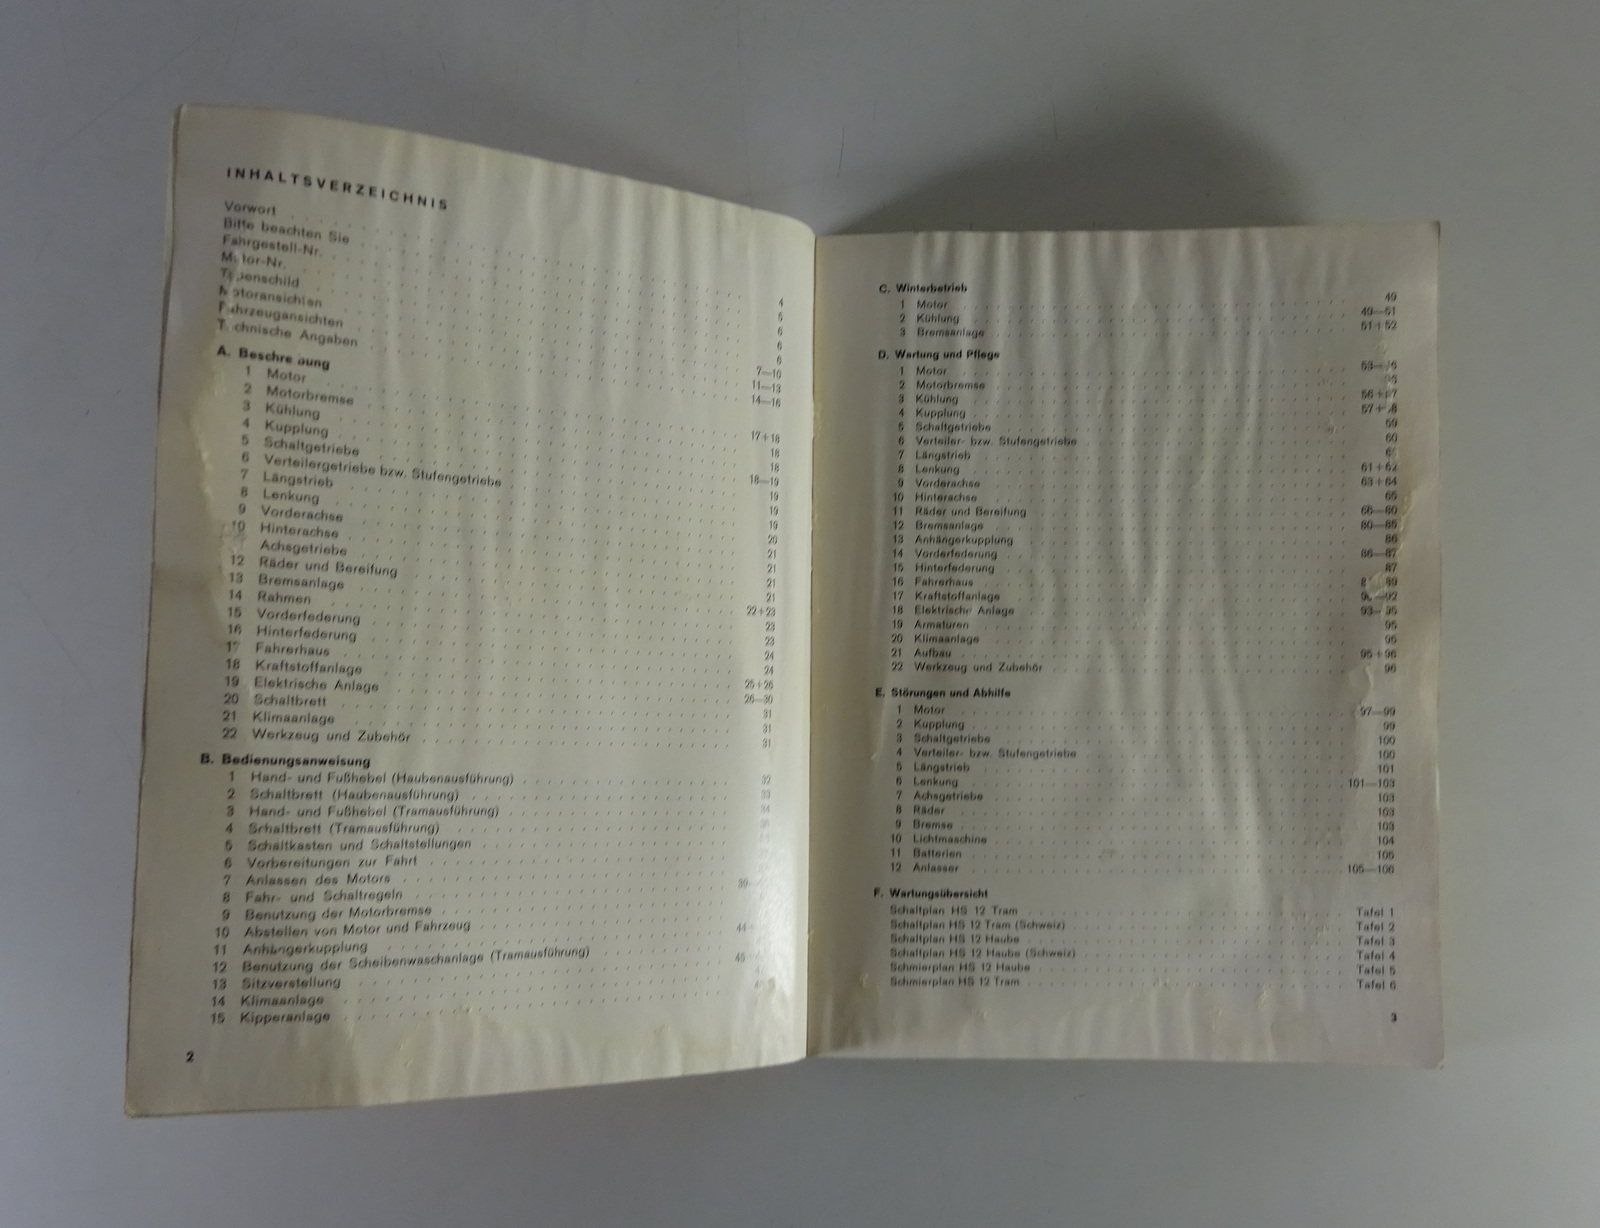 INHALTSVERZEICHNIS
Vorwort 4
Bitte beachten Sie 5
Fahrgestell-Nr. 6
Motor-Nr. 6
Typenschild 6
Motoransichten 7—10
Fahrzeugansichten 11—13
Technische Angaben 14—16
A. Beschreibung
1 Motor 17+18
2 Motorbremse 18
3 Kühlung 18
4 Kupplung 18—19
5 Schaltgetriebe 19
6 Verteilergetriebe bzw. Stufengetriebe 19
7 Längstrieb 19
8 Lenkung 20
9 Vorderachse 21
10 Hinterachse 21
Achsgetriebe 21
12 Räder und Bereifung 21
13 Bremsanlage 22+23
14 Rahmen 23
15 Vorderfederung 23
16 Hinterfederung 24
17 Fahrerhaus 24
18 Kraftstoffanlage 25+26
19 Elektrische Anlage 26—30
20 Schaltbrett 31
21 Klimaanlage 31
22 Werkzeug und Zubehör 31
B. Bedienungsanweisung
1 Hand- und Fußhebel (Haubenausführung) 32
2 Schaltbrett (Haubenausführung) 33
3 Hand- und Fußhebel (Tramausführung) 34
4 Schaltbrett (Tramausführung)
5 Schaltkasten und Schaltstellungen
6 Vorbereitungen zur Fahrt
7 Anlassen des Motors
8 Fahr- und Schaltregeln 39—
9 Benutzung der Motorbremse
10 Abstellen von Motor und Fahrzeug
11 Anhängerkupplung 44
12 Benutzung der Scheibenwaschanlage (Tramausführung)
13 Sitzverstellung
14 Klimaanlage
15 Kipperanlage
2
C. Winterbetrieb
1 Motor 49
2 Kühlung 49—51
3 Bremsanlage 51+52
D. Wartung und Pflege
1 Motor
2 Motorbremse
3 Kühlung 56+57
4 Kupplung
5 Schaltgetriebe 59
6 Verteiler- bzw. Stufengetriebe 60
7 Längstrieb
8 Lenkung 61+62
9 Vorderachse 63+64
10 Hinterachse 65
11 Räder und Bereifung
12 Bremsanlage 80—85
13 Anhängerkupplung 86
14 Vorderfederung 86—87
15 Hinterfederung 87
16 Fahrerhaus
17 Kraftstoffanlage
18 Elektrische Anlage 93—95
19 Armaturen 95
20 Klimaanlage 95
21 Aufbau 95+96
22 Werkzeug und Zubehör 96
E. Störungen und Abhilfe
1 Motor 97—99
2 Kupplung 99
3 Schaltgetriebe 100
4 Verteiler- bzw. Stufengetriebe 100
5 Längstrieb 101
6 Lenkung 101—103
7 Achsgetriebe 103
8 Räder 103
9 Bremse 103
10 Lichtmaschine 104
11 Batterien 105
12 Anlasser 105—106
F. Wartungsübersicht
Schaltplan HS 12 Tram Tafel 1
Schaltplan HS 12 Tram (Schweiz) Tafel 2
Schaltplan HS 12 Haube Tafel 3
Schaltplan HS 12 Haube (Schweiz) Tafel 4
Schmierplan HS 12 Haube Tafel 5
Schmierplan HS 12 Tram Tafel 6
3